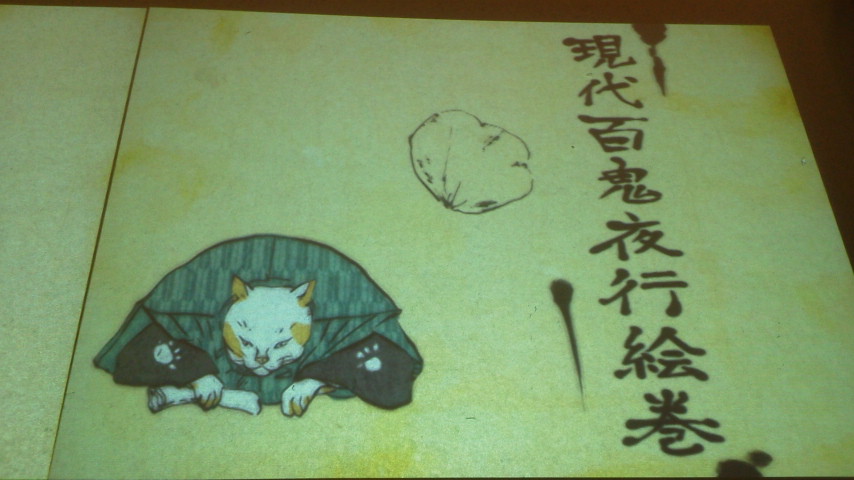 現代百鬼夜行絵巻